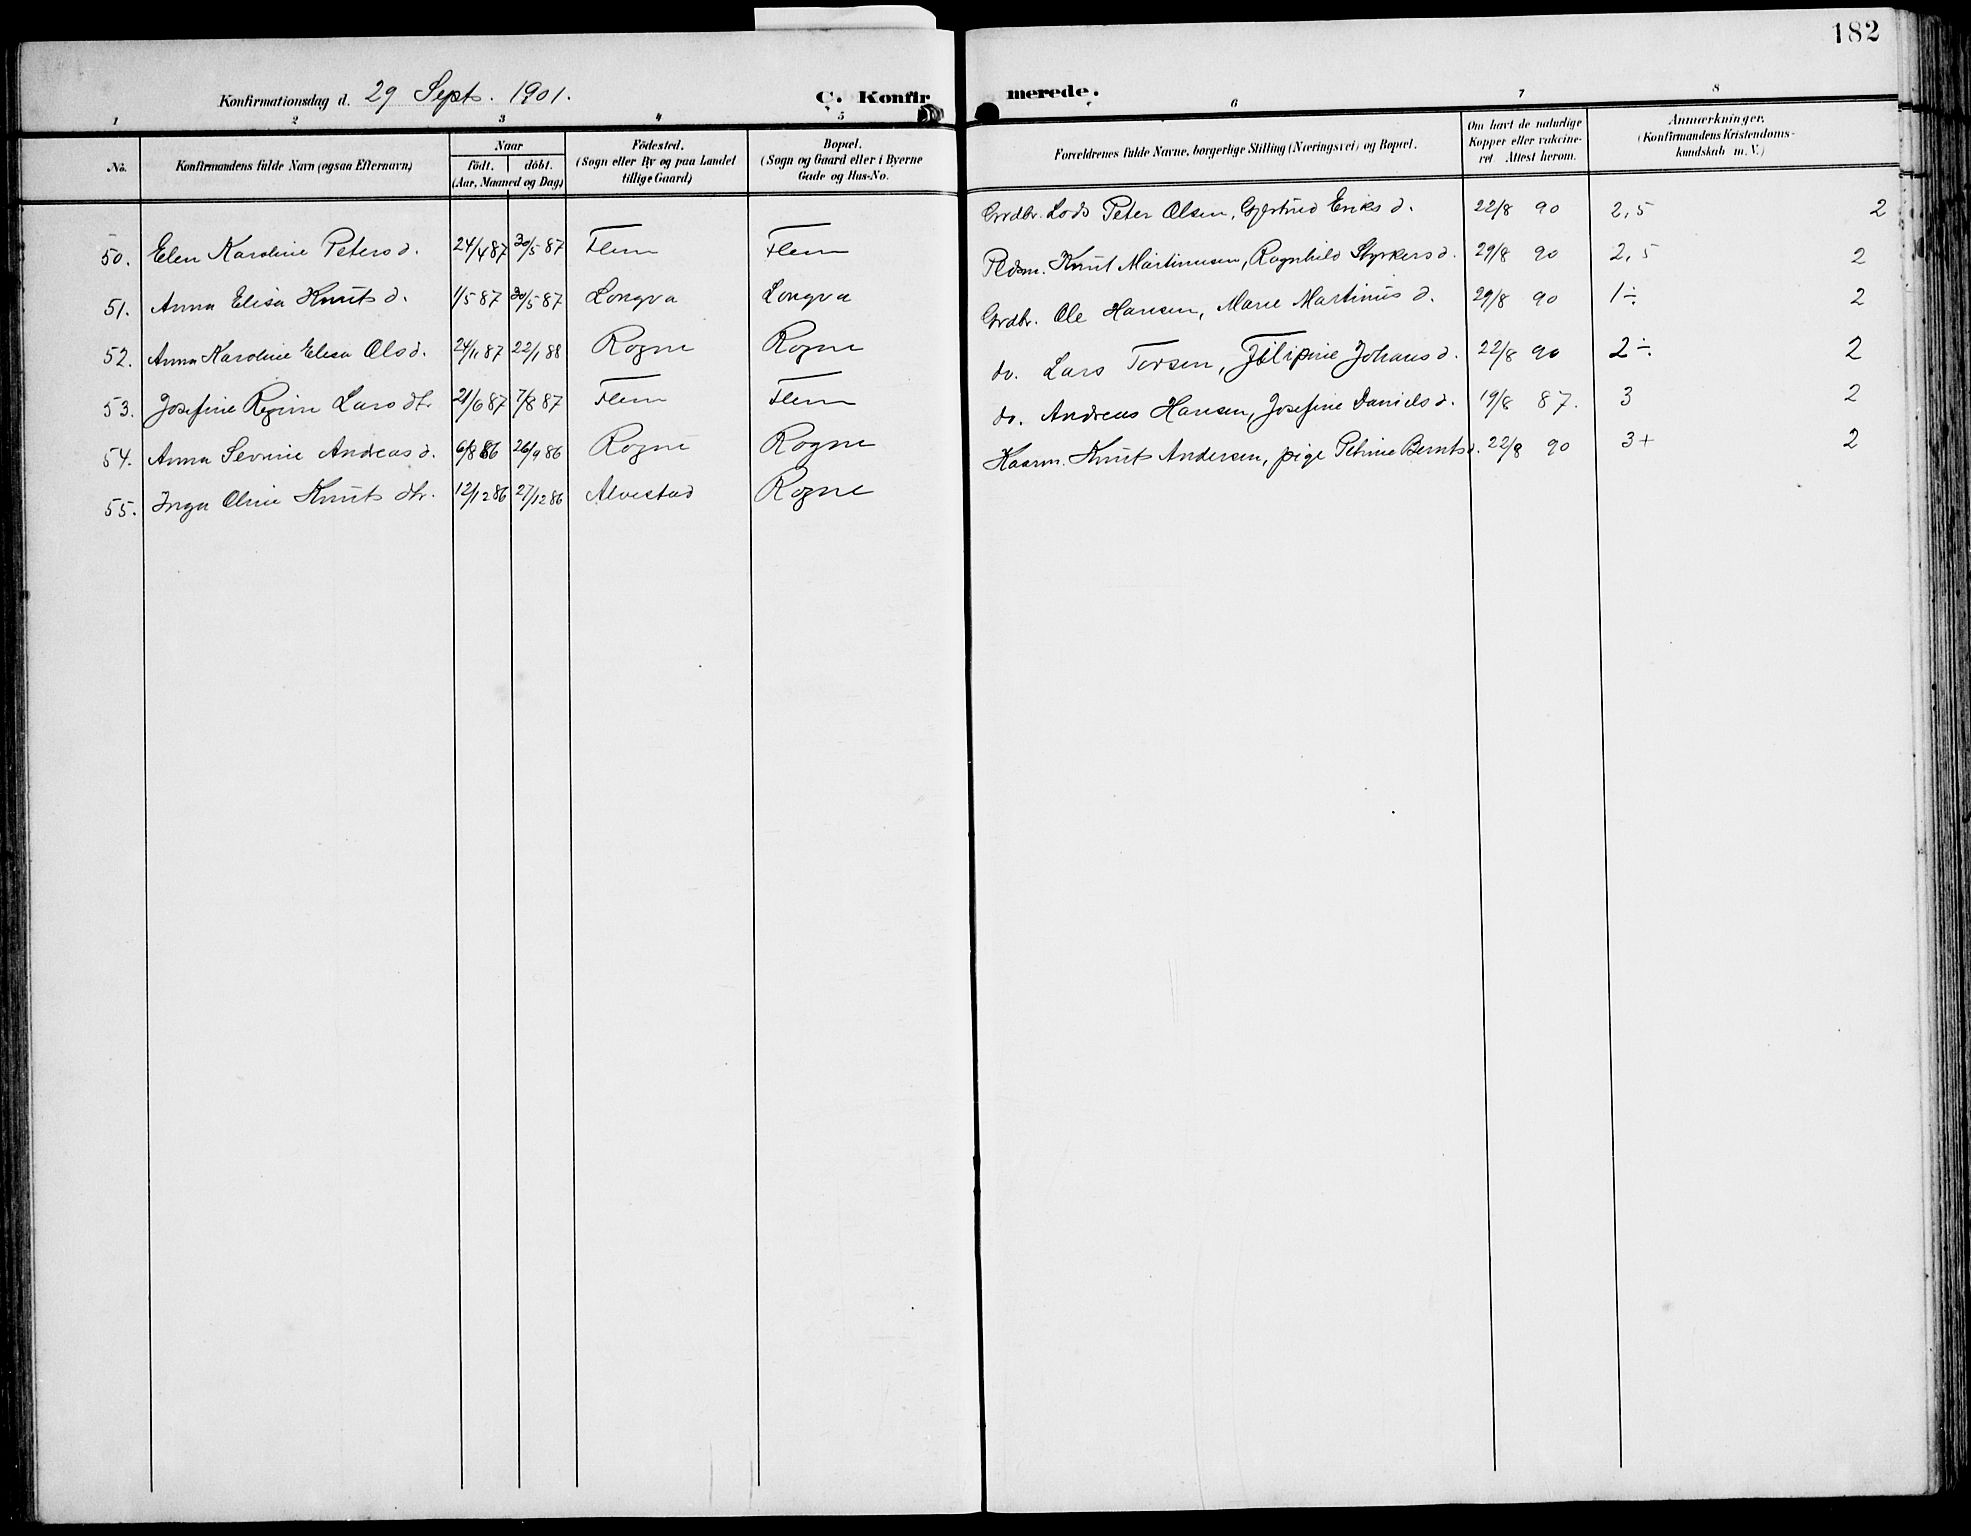 182
Konfirmationsdag d. 29 Sept. 1901. C. Konfirmerede.
1 2 3 4 5 6 7 8
No. Konfirmandens fulde Navn (ogsaa Efternavn)
Naar
födt. döbt.
(Aar, Maaned og Dag)
Födested.
(Sogn eller By og paa Landet
tillige Gaard)
Bopæl.
(Sogn og Gaard eller i Byerne
Gade og Hus-No.
Forældrenes fulde Navne, borgerlige Stilling (Næringsvei) og Bopæl.
Om havt de naturlige
Kopper eller vakcine-
ret. Attest herom.
Anmærkninger.
(Konfirmandens Kristendoms-
kundskab m. V.)
50. Elen Karoline Peters d. 24/4 87 30/5 87 Flem Flem Grdbr. Lods Peter Olsen, Gjertrud Eriks d. 22/8 90 2,5 2
51. Anna Elisa Knuts d. 1/5 87 30/5 87 Longva Longva Pldsm. Knut Martinusen, Ragnhild Styrkers d. 29/8 90 2,5 2
52. Anna Karoline Elisa Ols d. 24/11 87 22/1 88 Rogne Rogne Grdbr. Ole Hansen, Marie Martinus d. 29/8 90 1÷ 2
53. Josefine Regine Lars dtr. 21/6 87 7/8 87 Flem Flem do. Lars Torsen, Filipine Johans d. 22/8 90 2÷ 2
54. Anna Sevrine Andreas d. 6/8 86 26/9 86 Rogne Rogne do. Andreas Hansen, Josefine Daniels d. 19/8 87. 3 2
55. Inga Oline Knuts dtr. 12/12 86 27/12 86 Alvestad Rogne Kaarm. Knut Andersen, pige Petrine Bernts d. 22/8 90 3+ 2